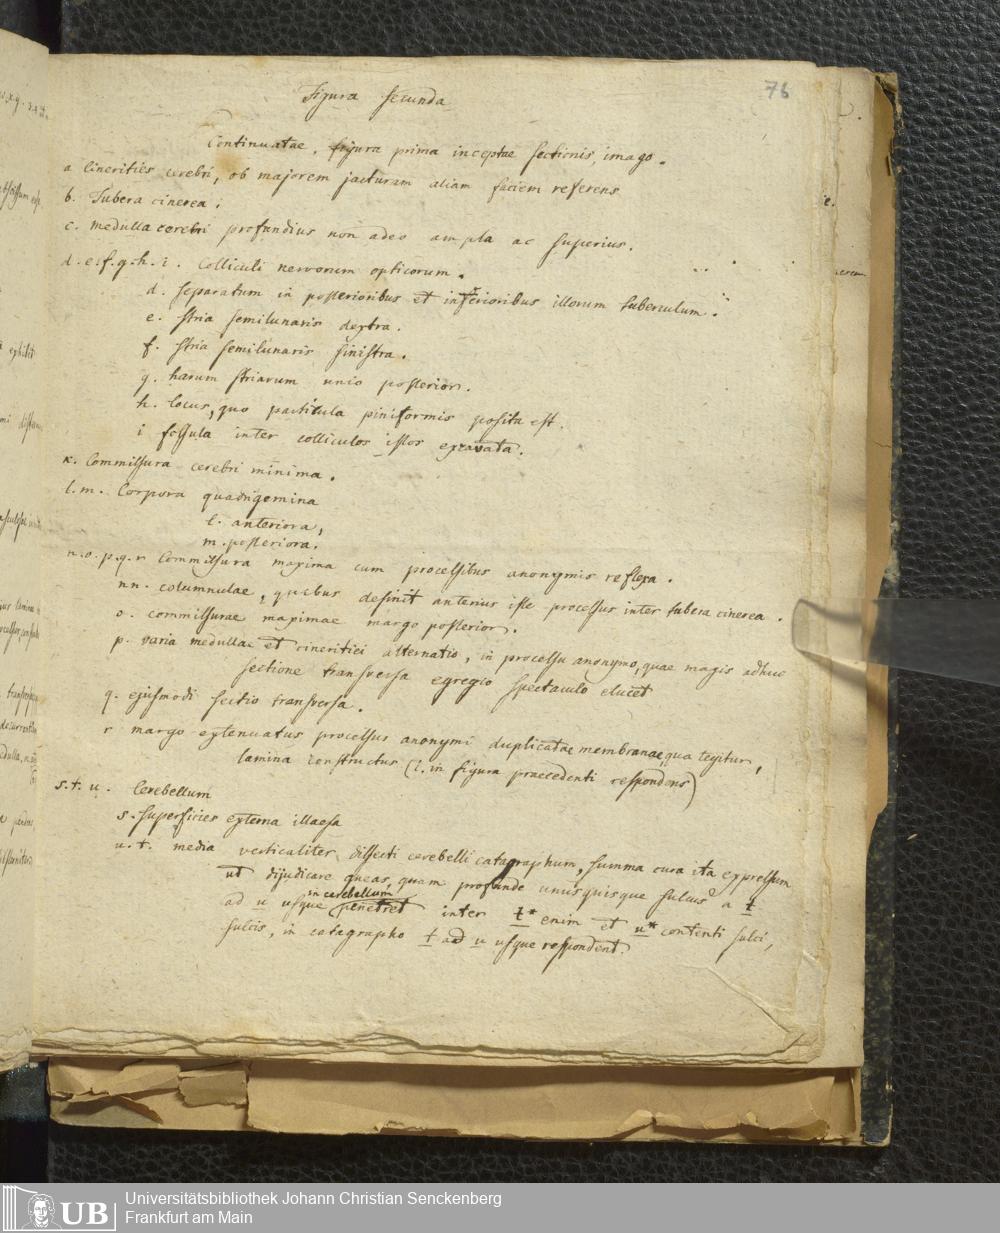 76
Figura secunda
Continuatae, figura prima inceptae sectionis, imago.
a cinerities cerebri, ob majorem jacturam aliam faciem referens
b. Tubera cinerea.
c. medulla cerebri profundius non adeo ampla ac superius.
d. e. f. g. h. i. Colliculi nervorum opticorum.
d. separatum in posterioribus et inferioribus illorum tuberculum.
e. stria semilunaris dextra.
f. stria semilunaris sinistra.
g. harum striarum unio posterior.
h. locus, quo particula piniformis posita est.
i fossula inter colliculos istos excavata.
k. Commissura cerebri minima.
l. m. Corpora quadrigemina
l. anteriora,
m. posteriora.
n. o. p. q. r Commissura maxima cum processibus anonymis reflexa.
nn. columnulae, quibus definit anterius iste processus inter tubera cinerea.
o. commissurae maximae margo posterior.
p. varia medullae et cineritiei alternatio, in processu anonymo, quae magis adhuc
sectione transversa egregio spectaculo elucet
q. ejusmodi sectio transversa.
r margo extenuatus processus anonymi duplicatae membranae, qua tegitur,
lamina constructus (i. in figura praecedenti respondens)
s. t. u. Cerebellum
s. superficies externa illaesa
u. t. media verticaliter dissecti cerebelli catagraphum, summa cura ita expressum
ut dijudicare queas, quam profunde unusquisque sulcus a t
ad u usque in cerebellum penetret inter t* enim et u* contenti sulci,
sulcis, in catagrapho t ad u usque respondent.
Universitätsbibliothek Johann Christian Senckenberg
Frankfurt am Main
UB